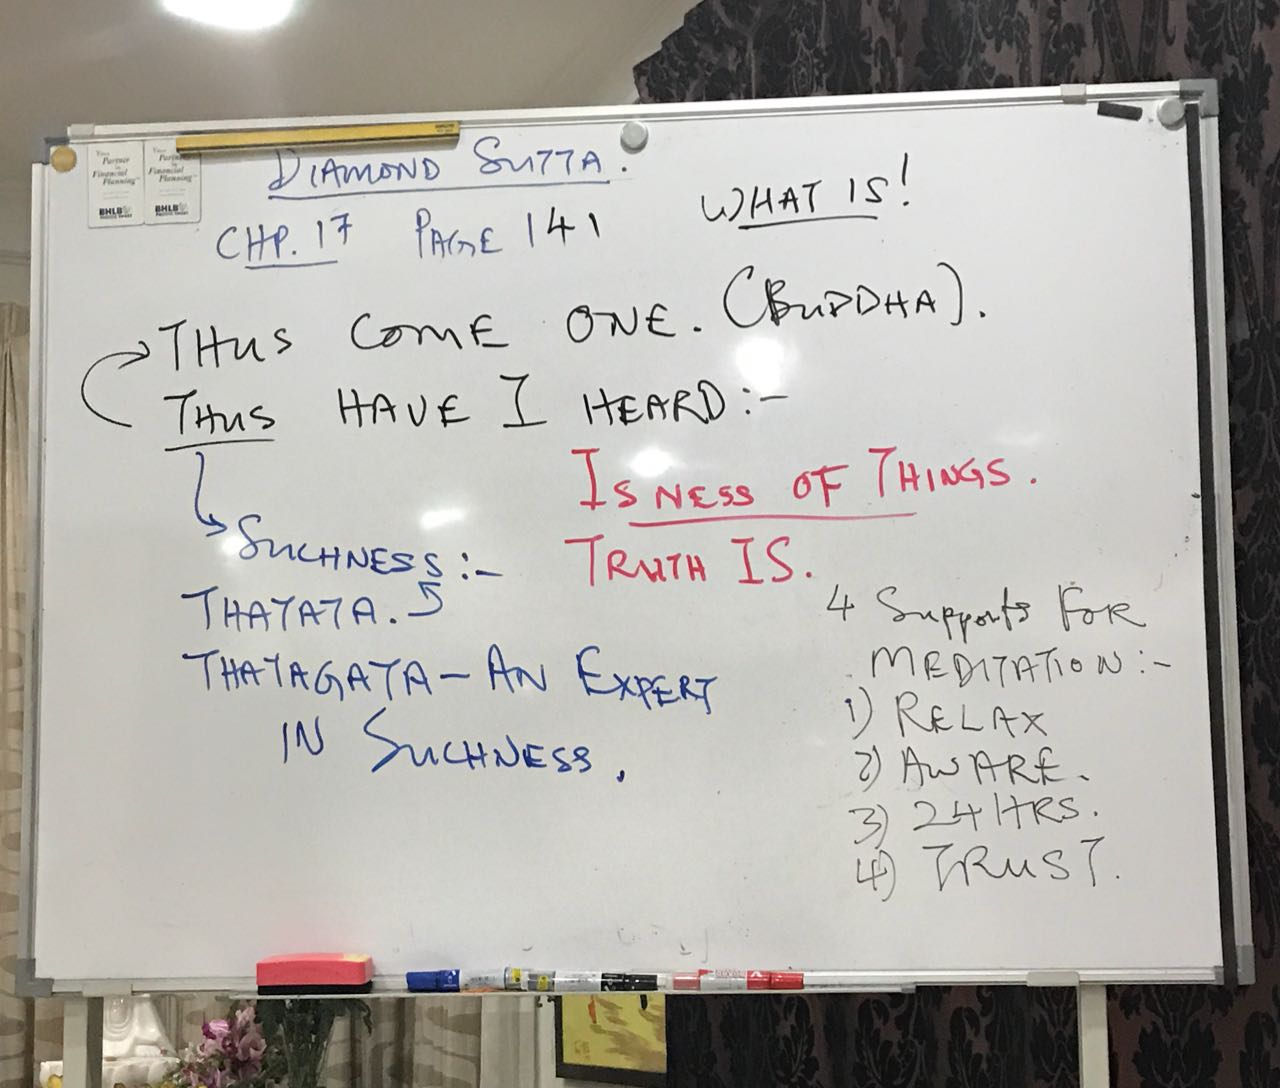 Your
Partner
in
Financial
Planning
BHLB
Your
Partner
in
Financial
Planning
BHLB
DIAMOND SUTTA.
WHAT IS!
CHP. 17 PAGE 141
THUS COME ONE. (BUDDHA).
THUS HAVE I HEARD:-
ISNESS OF THINGS.
SUCHNESS:- TRUTH IS.
THATATA.
THATAGATA - AN EXPERT
IN SUCHNESS.
4 Supports FOR
MEDITATION:-
1) RELAX
2) AWARE.
3) 24 HRS.
4) TRUST.